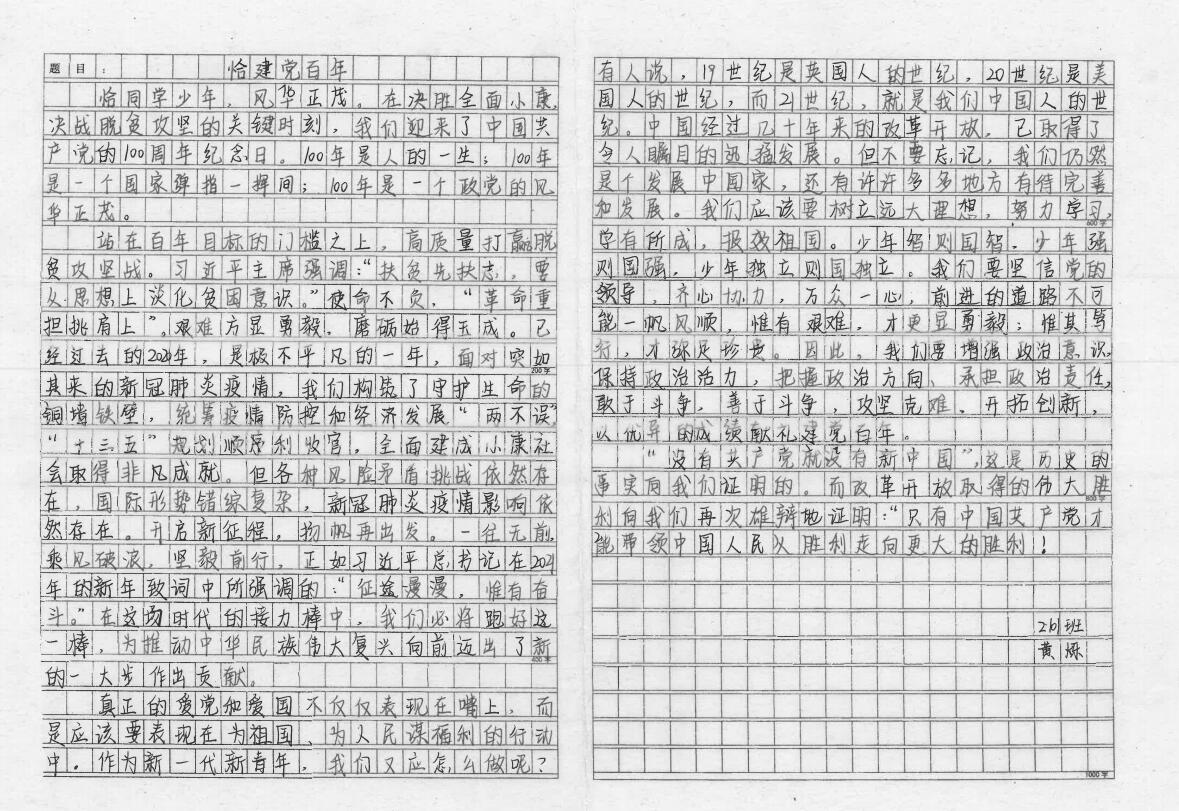 题目：恰建党百年
恰同学少年，风华正茂。在决胜全面小康，
决战脱贫攻坚的关键时刻，我们迎来了中国共
产党的100周年纪念日。100年是人的一生；100年
是一个国家弹指一挥间；100年是一个政党的风
华正茂。
站在百年目标的门槛之上，高质量打赢脱
贫攻坚战。习近平主席强调：“扶贫先扶志，要
从思想上淡化贫困意识。”使命不负，“革命重
担挑肩上”。艰难方显勇毅，磨砺始得玉成。已
经过去的2021年，是极不平凡的一年，面对突如
200字
其来的新冠肺炎疫情，我们构筑了守护生命的
铜墙铁壁，统筹疫情防控和经济发展“两不误”
“十三五”规划顺序利收官，全面建成小康社
会取得非凡成就。但各种风险矛盾挑战依然存
在，国际形势错综复杂，新冠肺炎疫情影响依
然存在。开启新征程，扬帆再出发。一往无前，
乘风破浪，坚毅前行，正如习近平总书记在2021
年的新年致词中所强调的：“征途漫漫，惟有奋
斗。”在这场时代的接力棒中，我们必将跑好这
一棒，为推动中华民族伟大复兴向前迈出了新
400字
的一大步作出贡献。
真正的爱党和爱国不仅仅表现在嘴上，而
是应该要表现在为祖国、为人民谋福利的行动
中。作为新一代新青年，我们又应怎么做呢？
有人说，19世纪是英国人的世纪，20世纪是美
国人的世纪，而21世纪，就是我们中国人的世
纪。中国经过几十年来的改革开放，已取得了
令人瞩目的迅猛发展。但不要忘记，我们仍然
是个发展中国家，还有许许多多地方有待完善
和发展。我们应该要树立远大理想，努力学习，
600字
学有所成，报效祖国。少年智则国智，少年强
则国强，少年独立则国独立。我们要坚信党的
领导，齐心协力，万众一心，前进的道路不可
能一帆风顺，惟有艰难，才更显勇毅；惟其笃
行，才弥足珍贵。因此，我们要增强政治意识，
保持政治活力，把握政治方向、承担政治责任，
敢于斗争，善于斗争，攻坚克难，开拓创新，
以优异的成绩献礼建党百年。
“没有共产党就没有新中国”，这是历史的
事实向我们证明的。而改革开放取得的伟大胜
800字
利向我们再次雄辩地证明：“只有中国共产党才
能带领中国人民从胜利走向更大的胜利！
261班
黄烁
1000字